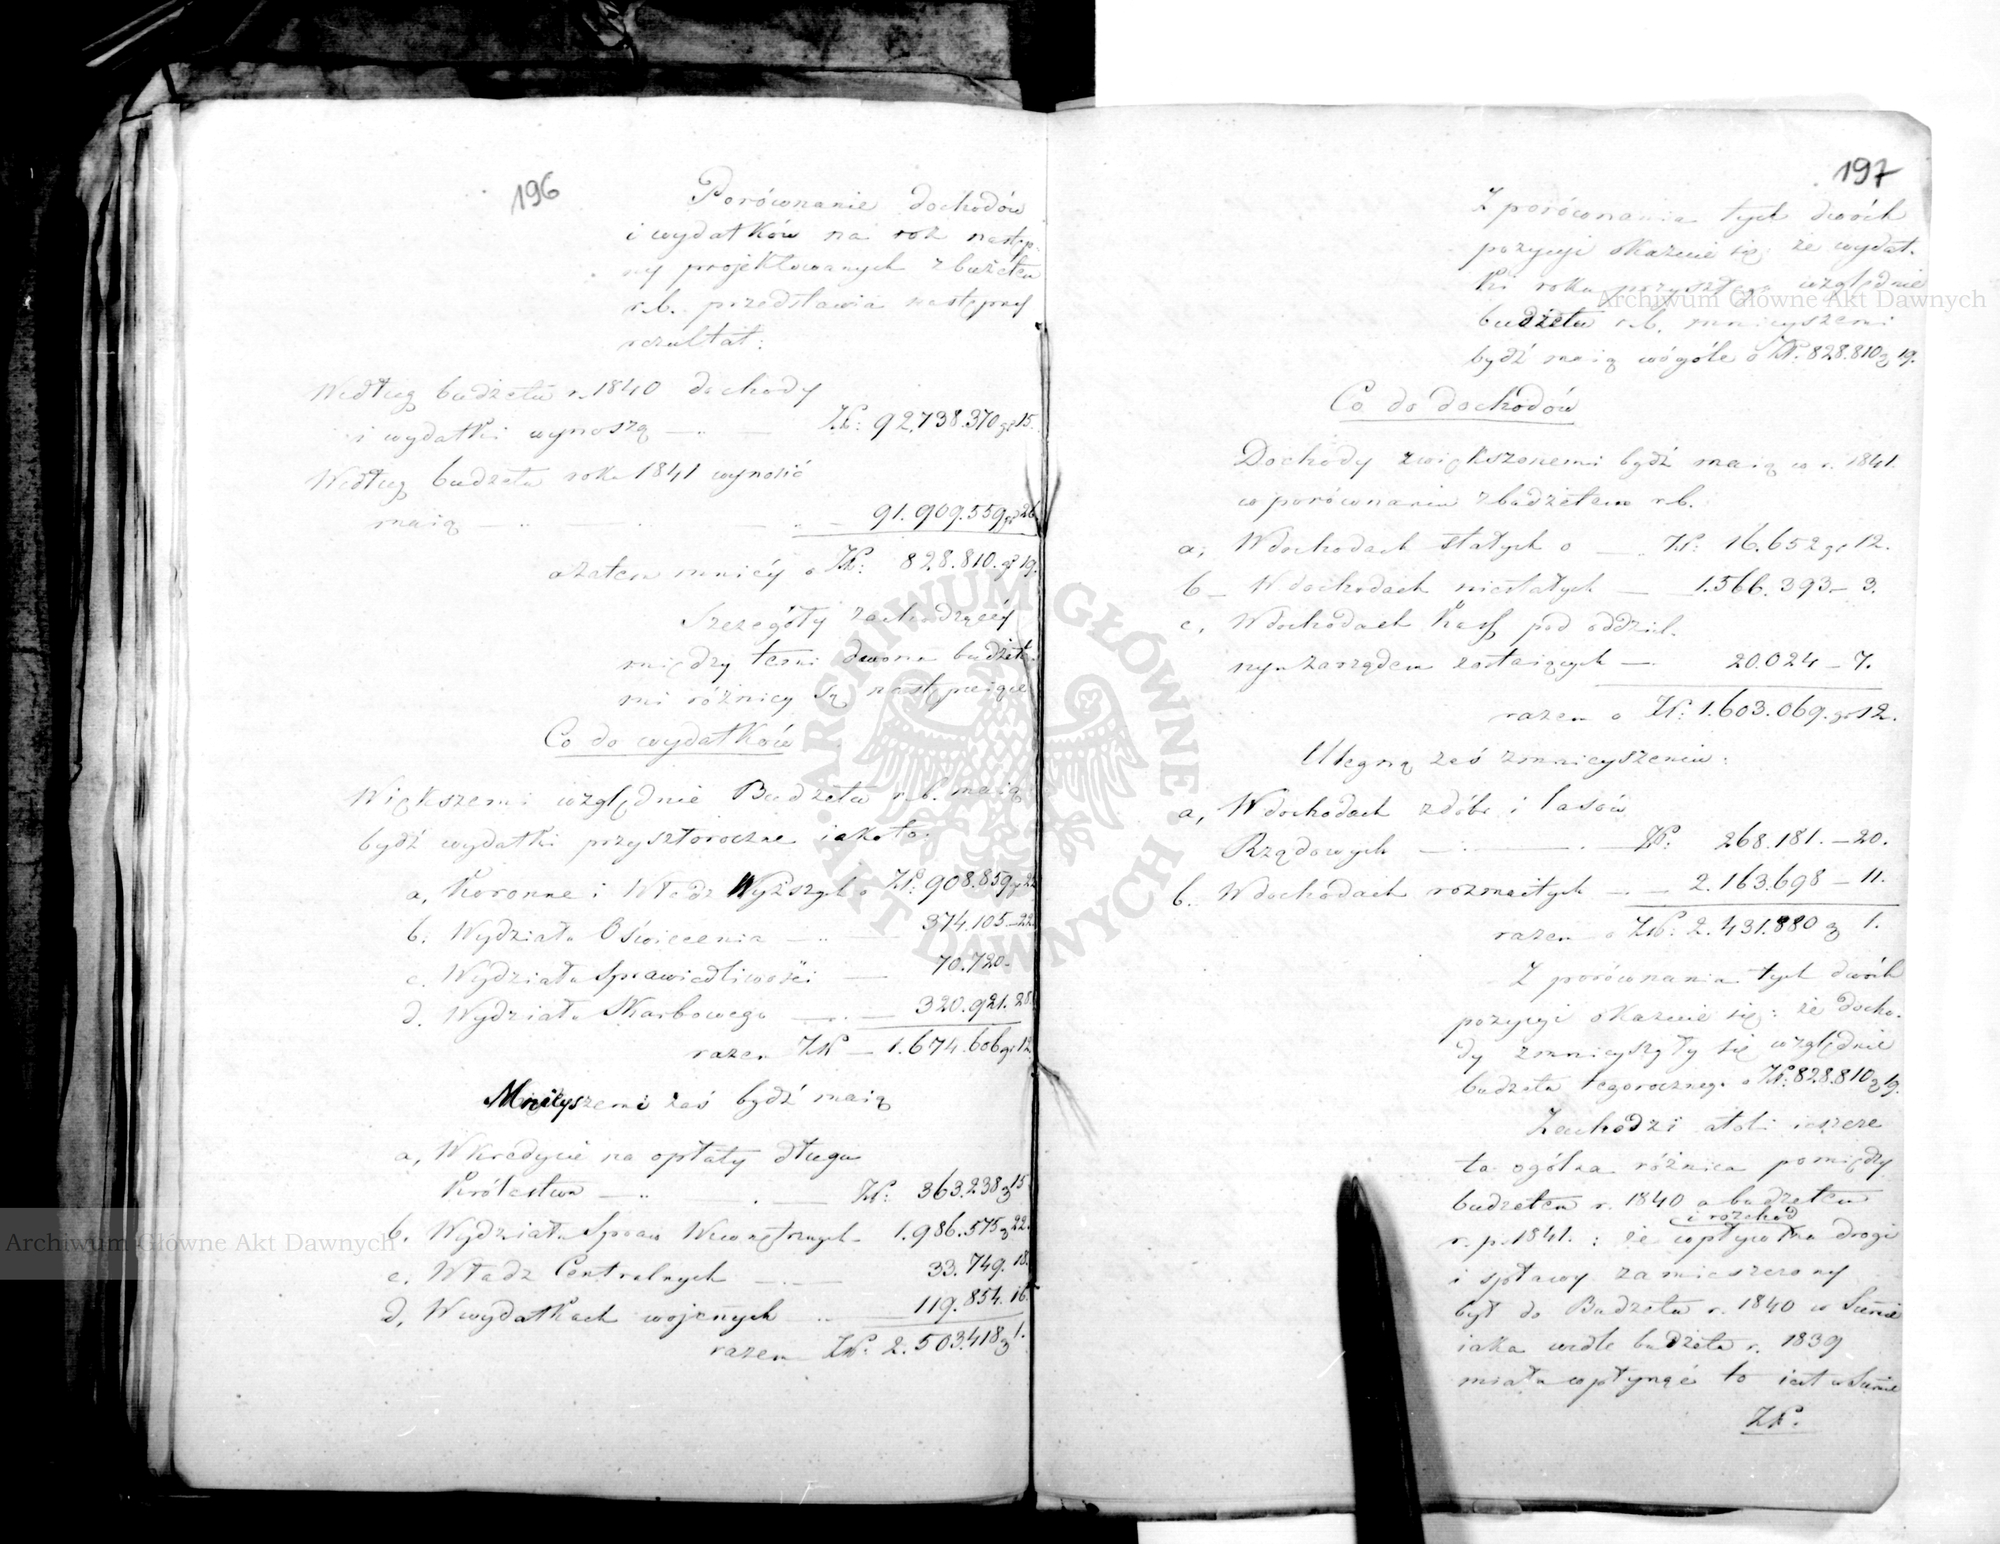 196
Porównanie dochodów
i wydatków na rok następ-
ny projektowanych z budżetem
r.b. przedstawia następny
rezultat:
Według budżetu r. 1840 dochody
i wydatki wynoszą — " — Zł: 92.738.370 gr 15.
Według budżetu roku 1841 wynosić
maią — " — 91.909.559 gr 26
a zatem mniéy o Zł: 828.810. gr 19.
Szczegóły zachodzącéy
między temi dwoma budżeta-
mi różnicy są następuiące
Co do wydatków
Większemi względnie Budżetu r.b. maią
bydź wydatki przyszłoroczne iakoto:
a, Koronne i Władz Wyższych o Zł: 908.859 gr 22
b. Wydziału Oświecenia — " — 374.105.—22
c. Wydziału Sprawiedliwości — 70.720.
d. Wydziału Skarbowego — 320.921. 28.
razem Zł — 1.674.606 gr 12.
Mnieyszemi zaś bydź maią
a, W kredycie na opłaty długu
Królestwa — " — Zł: 363.238 g 15
b. Wydziału Spraw Wewnętrznych 1.986.575 g 22.
c. Władz Centralnych — 33.749. 18.
d, W wydatkach wojennych — 119.854. 16.
razem Zł: 2.503.418 g 1.
197
Z porównania tych dwóch
pozycyi okazuie się że wydat-
ki roku przyszłego względnie
budżetu r.b. mnieyszemi
bydź maią wógóle o Zł. 828.810 g 19.
Co do dochodów
Dochody zwiększonemi bydź maią w r. 1841.
w porównaniu z budżetem r.b.
a, W dochodach stałych o — Zł: 16.652 gr 12.
b — W dochodach niestałych — 1.566.393 — 3.
c, W dochodach Kass pod oddziel-
nym zarządem zostaiących — 20.024 — 7.
razem o Zł: 1.603.069. gr 12.
Ulegną zaś zmnieyszeniu:
a, W dochodach z dóbr i lasów
Rządowych — Zł: 268.181. — 20.
b. W dochodach rozmaitych — 2.163.698 — 11.
razem o Zł: 2.431.880 g 1.
Z porównania tych dwóch
pozycyi okazuie się: że docho-
dy zmnieyszyły się względnie
budżetu tegorocznego o Zł: 828.810 g 19.
Zachodzi atoli ieszcze
ta ogólna różnica pomiędzy
budżetem r. 1840 a budżetem
i rozchód
r. p. 1841. : że wpływ na drogi
i spławy zamieszczony
był do Budżetu r. 1840 w Sumie
iaka wedle budżetu r. 1839
miała wpłynąć to iest w Sumie
Zł.
Archiwum Główne Akt Dawnych
Archiwum Główne Akt Dawnych
ARCHIWUM GŁÓWNE AKT DAWNYCH